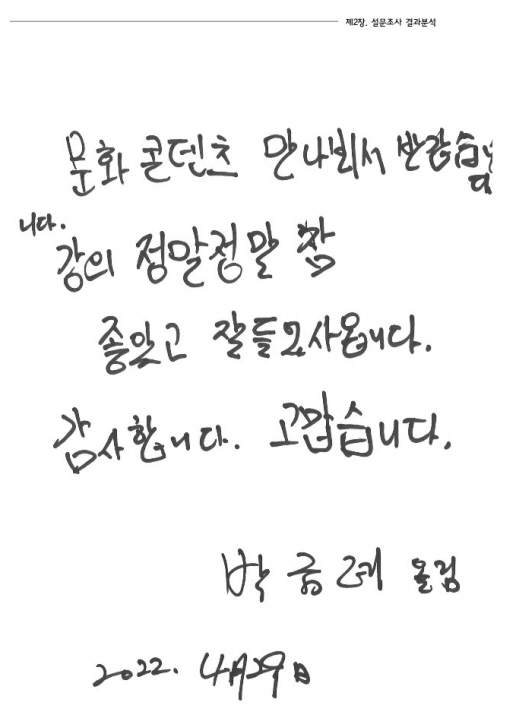 제2장. 설문조사 결과분석
문화 콘텐츠 만나뵈서 반갑습
니다.
강의 정말정말 참
좋았고 잘들
감사합니다. 고맙습니다.
박금례 올림
2022. 4月29日